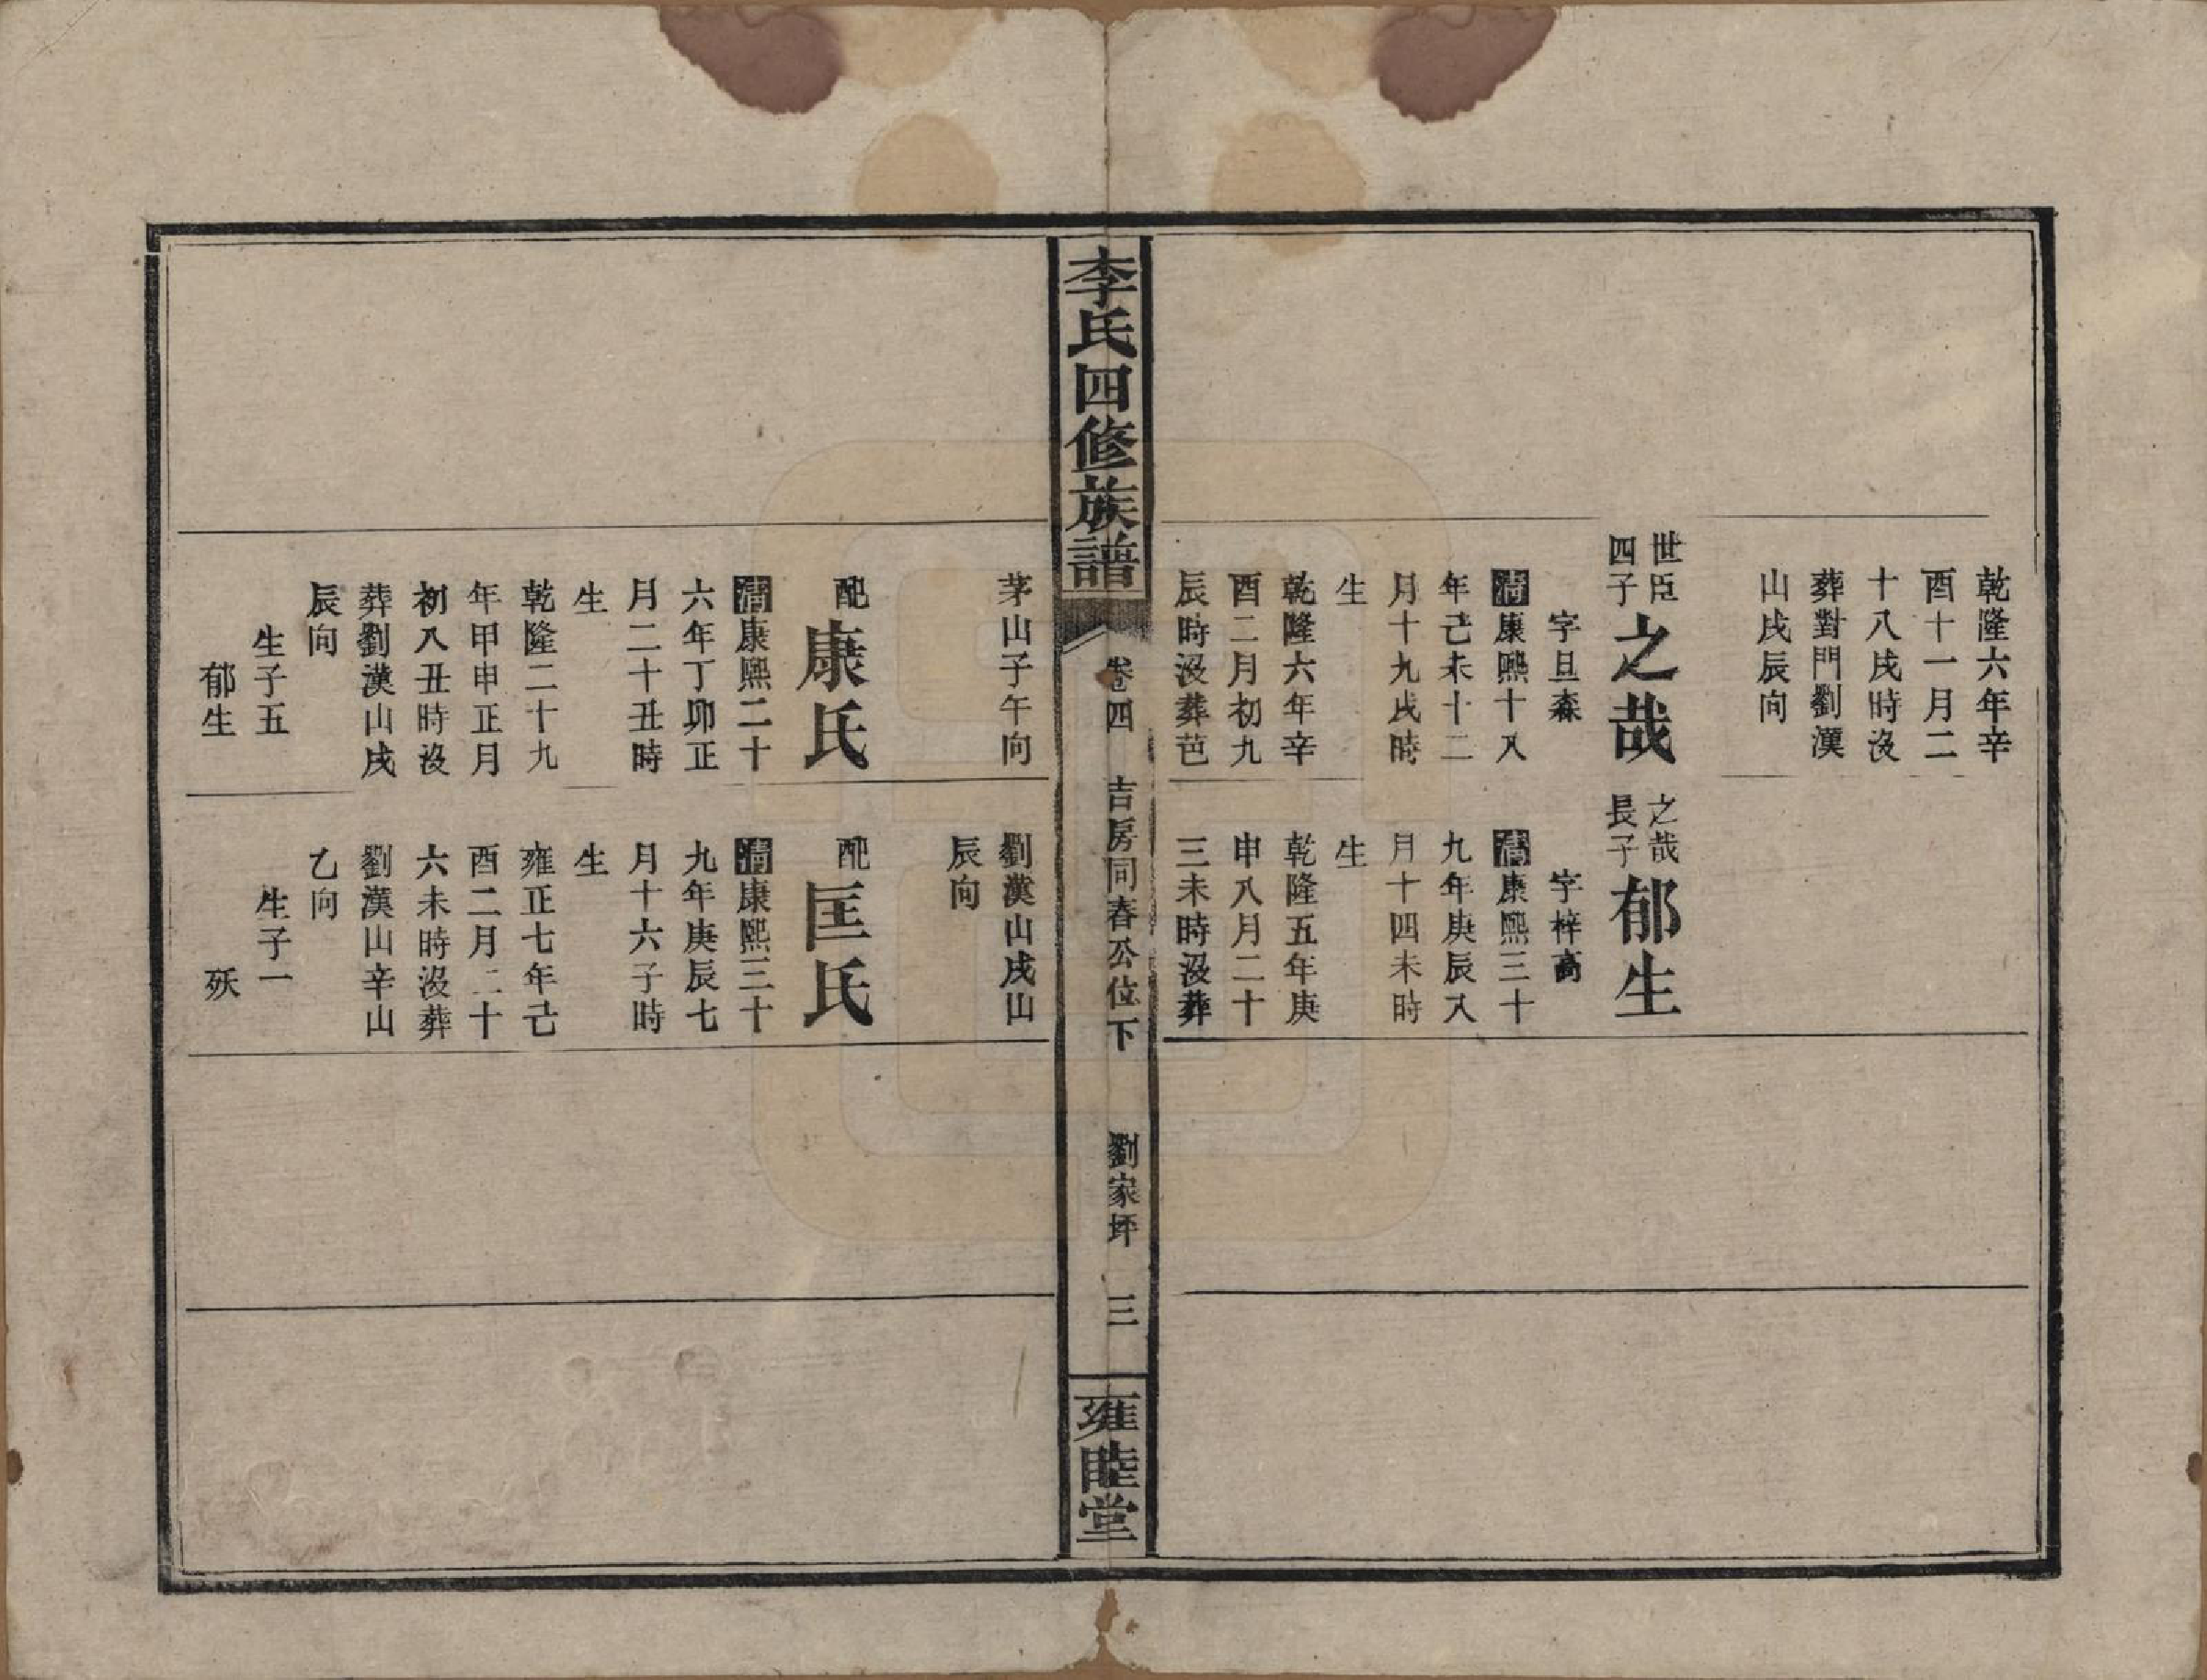 乾隆六年辛
酉十一月二
十八戌時沒
葬對門劉漢
山戌辰向
世臣
四子
之哉
字旦森
清康熙十八
年己未十二
月十九戌時
生
乾隆六年辛
酉二月初九
辰時沒葬芭
之哉
長子
郁生
字梓高
清康熙三十
九年庚辰八
月十四未時
生
乾隆五年庚
申八月二十
三未時沒葬
李氏四修族譜
卷四
吉房同春公位下
劉家坪
三
雍睦堂
茅山子午向
配
康氏
清康熙二十
六年丁卯正
月二十丑時
生
乾隆二十九
年甲申正月
初八丑時沒
葬劉漢山戌
辰向
生子五
郁生
劉漢山戌山
辰向
配
匡氏
清康熙三十
九年庚辰七
月十六子時
生
雍正七年己
酉二月二十
六未時沒葬
劉漢山辛山
乙向
生子一
殀